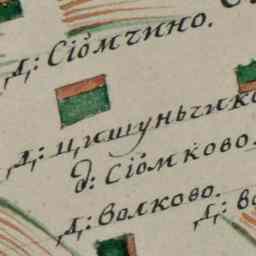 Д: Сíомчино.
Д: Цишуньчико
д: Сíомково.
Д: Волково.
Д: Во